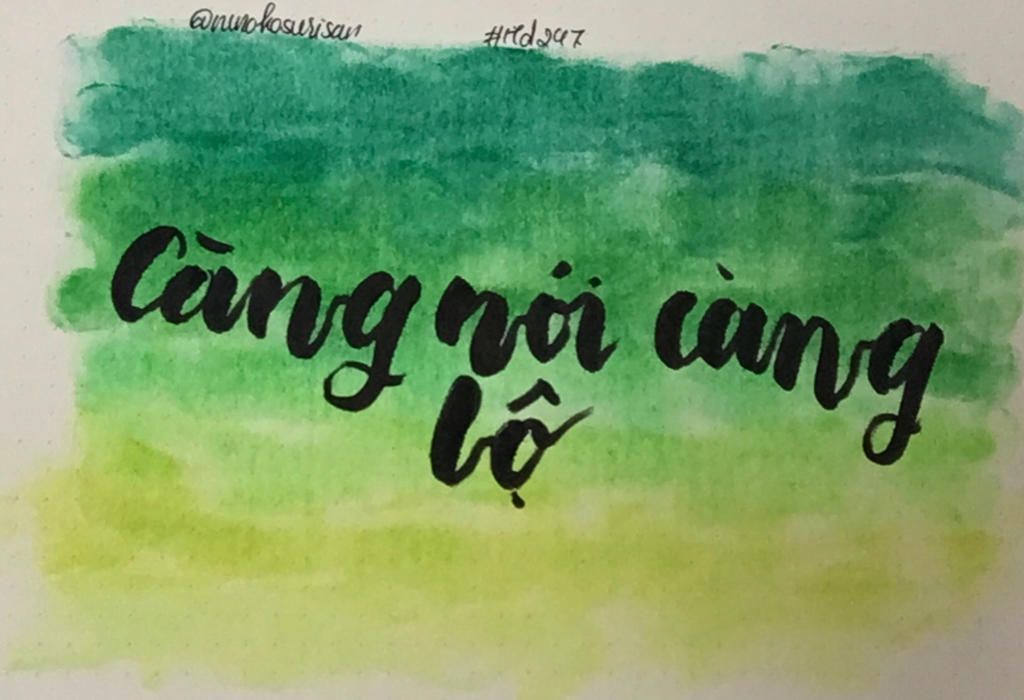 @ninokosurisan #Md247
Càng nói càng
lộ